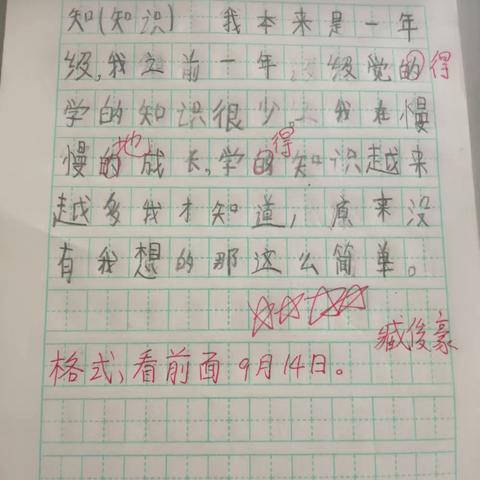 知(知识) 我本来是一年
级,我之前一年级觉的得
学的知识很少。我在慢
慢的地成长,学的得知识越来
越多我才知道,原来没
有我想的那这么简单。
臧俊豪
格式、看前面9月14日。